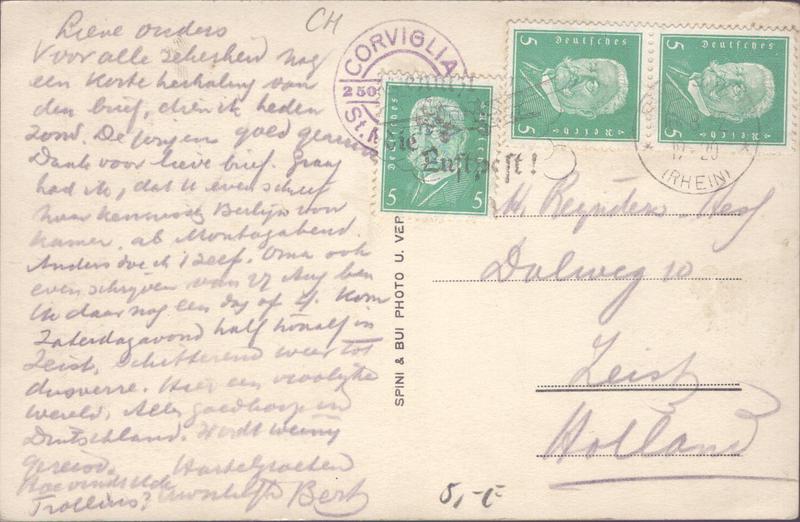 Lieve ouders
Voor alle zekerheid nog
een korte herhaling van
den brief, dien ik heden
zond. De jongen goed
Dank voor lieve brief. Graag
had ik, dat U even schrijf
naar Berlijn voor
kamer, ab Montagabend.
Anders doe ik 't zelf. Oma ook
even schrijven van 27 Aug ben
ik daar nog een dag of 4. Kom
Zaterdagavond half in
Zeist. Schitterend weer tot
dusverre. Hier een vroolijke
wereld. Alles goedkoop in
Deutschland. Wordt weinig
gereisd. Hartelgroeten
Bert
CH
CORVIGLIA
250
St.
Deutsches
Reich
5
Deutsches
Reich
5
Deutsches
Reich
5
die
Luftpost!
17-20
(RHEIN)
SPINI & BUI PHOTO U. VER
Dalweg 10
Zeist
Holland
8,- C